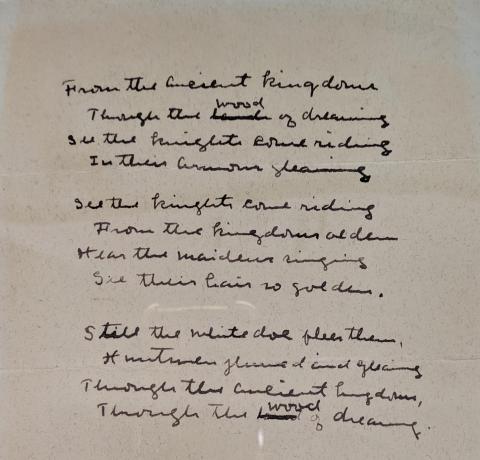 From the ancient kingdoms
Through the wood of dreaming
See the knights come riding
In their armour gleaming
See the knights come riding
From the kingdoms olden
Hear the maidens singing
See their hair so golden.
Still the white doe flees them,
Huntsmen plumed and gleaming
Through the ancient kingdoms,
Through the wood of dreaming.